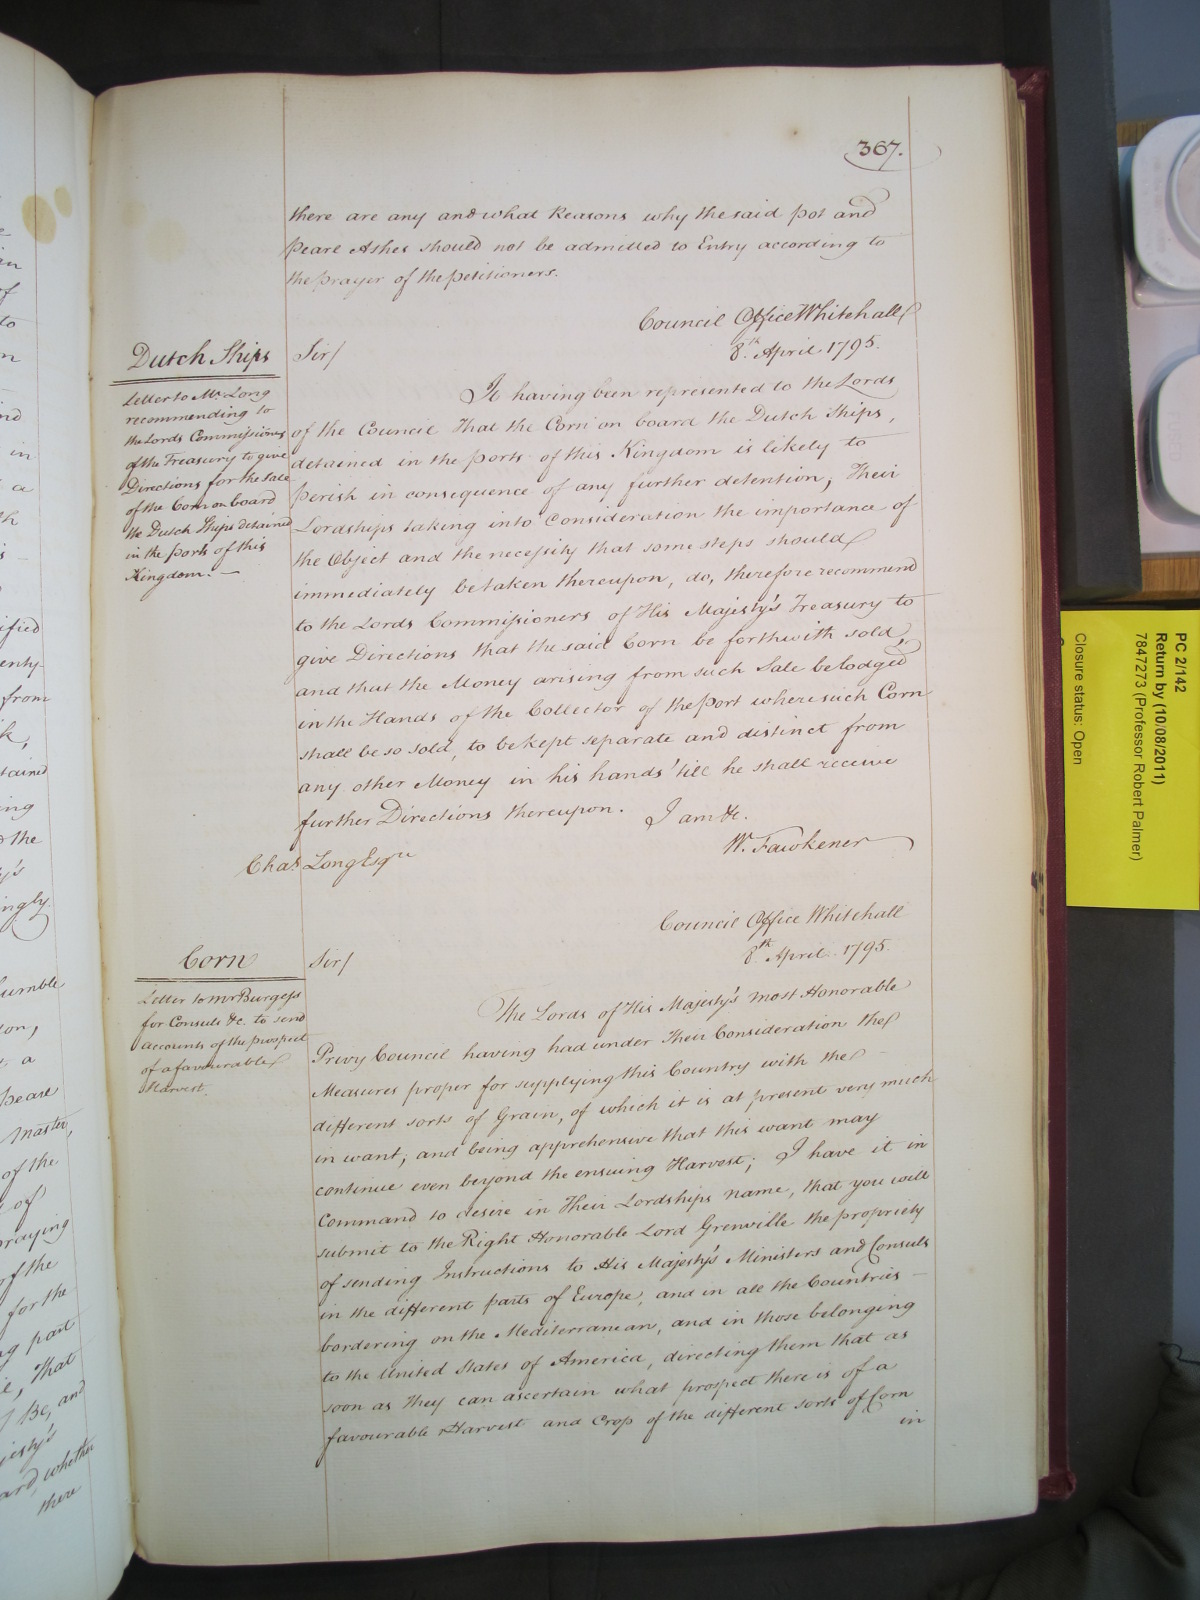 367.
there are any and what Reasons why the said pot and
Pearl Ashes should not be admitted to Entry according to
the prayer of the petitioners.
Council Office Whitehall
8th April 1795.
Dutch Ships
Letter to Mr Long
recommending to
the Lords Commissioners
of the Treasury to give
Directions for the Sale
of the Corn on board
the Dutch Ships detained
in the ports of this
Kingdom. —
Sir/
It having been represented to the Lords
of the Council That the Corn on board the Dutch Ships,
detained in the ports of this Kingdom is likely to
perish in consequence of any further detention; Their
Lordships taking into Consideration the importance of
the Object and the necessity that some steps should
immediately be taken thereupon, do, therefore recommend
to the Lords Commissioners of His Majesty's Treasury to
give Directions that the said Corn be forthwith sold,
and that the Money arising from such Sale be lodged
in the Hands of the Collector of the port where such Corn
shall be so sold, to be kept separate and distinct from
any other Money in his hands 'till he shall receive
further Directions thereupon. I am &c.
W. Fawkener
Chas. Long Esqre
Council Office Whitehall
8th April. 1795.
Corn
Letter to mr Burgess
for Consuls &c. to send
accounts of the prospect
of a favourable
Harvest.
Sir/
The Lords of His Majesty's most Honorable
Privy Council having had under Their Consideration the
Measures proper for supplying this Country with the
different sorts of Grain, of which it is at present very much
in want; and being apprehensive that this want may
continue even beyond the ensuing Harvest; I have it in
Command to desire in Their Lordships name, that you will
submit to the Right Honorable Lord Grenville the propriety
of sending Instructions to His Majesty's Ministers and Consuls
in the different parts of Europe, and in all the Countries
bordering on the Mediterranean, and in those belonging
to the United States of America, directing them that as
soon as they can ascertain what prospect there is of a
favourable Harvest and Crop of the different sorts of Corn
in
PC 2/142
Return by (10/08/2011)
7847273 (Professor Robert Palmer)
Closure status: Open
ified
from
tained
ing
the
humble
a
master,
of the
of
praying
of the
for the
part
That
Be, and
whether
there